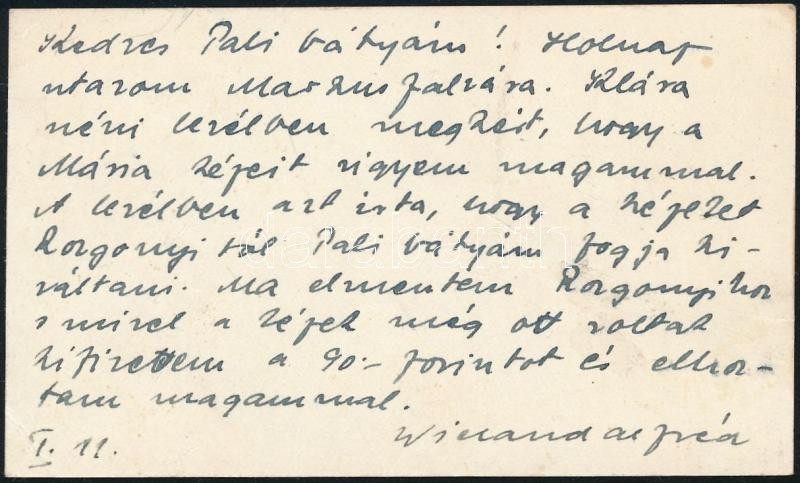 Kedves Pali bátyám! Holnap
utazom Markusfalvára. Klára
néni levélben megkért, hogy a
Mária képeit vigyem magammal.
A levélben azt irta, hogy a képeket
Rozgonyitól Pali bátyám fogja ki-
váltani. Ma elmentem Rozgonyihoz
s mivel a képek még ott voltak
kifizettem a 90.- forintot és elhoz-
tam magammal.
Wieland Alfréd
I. 11.